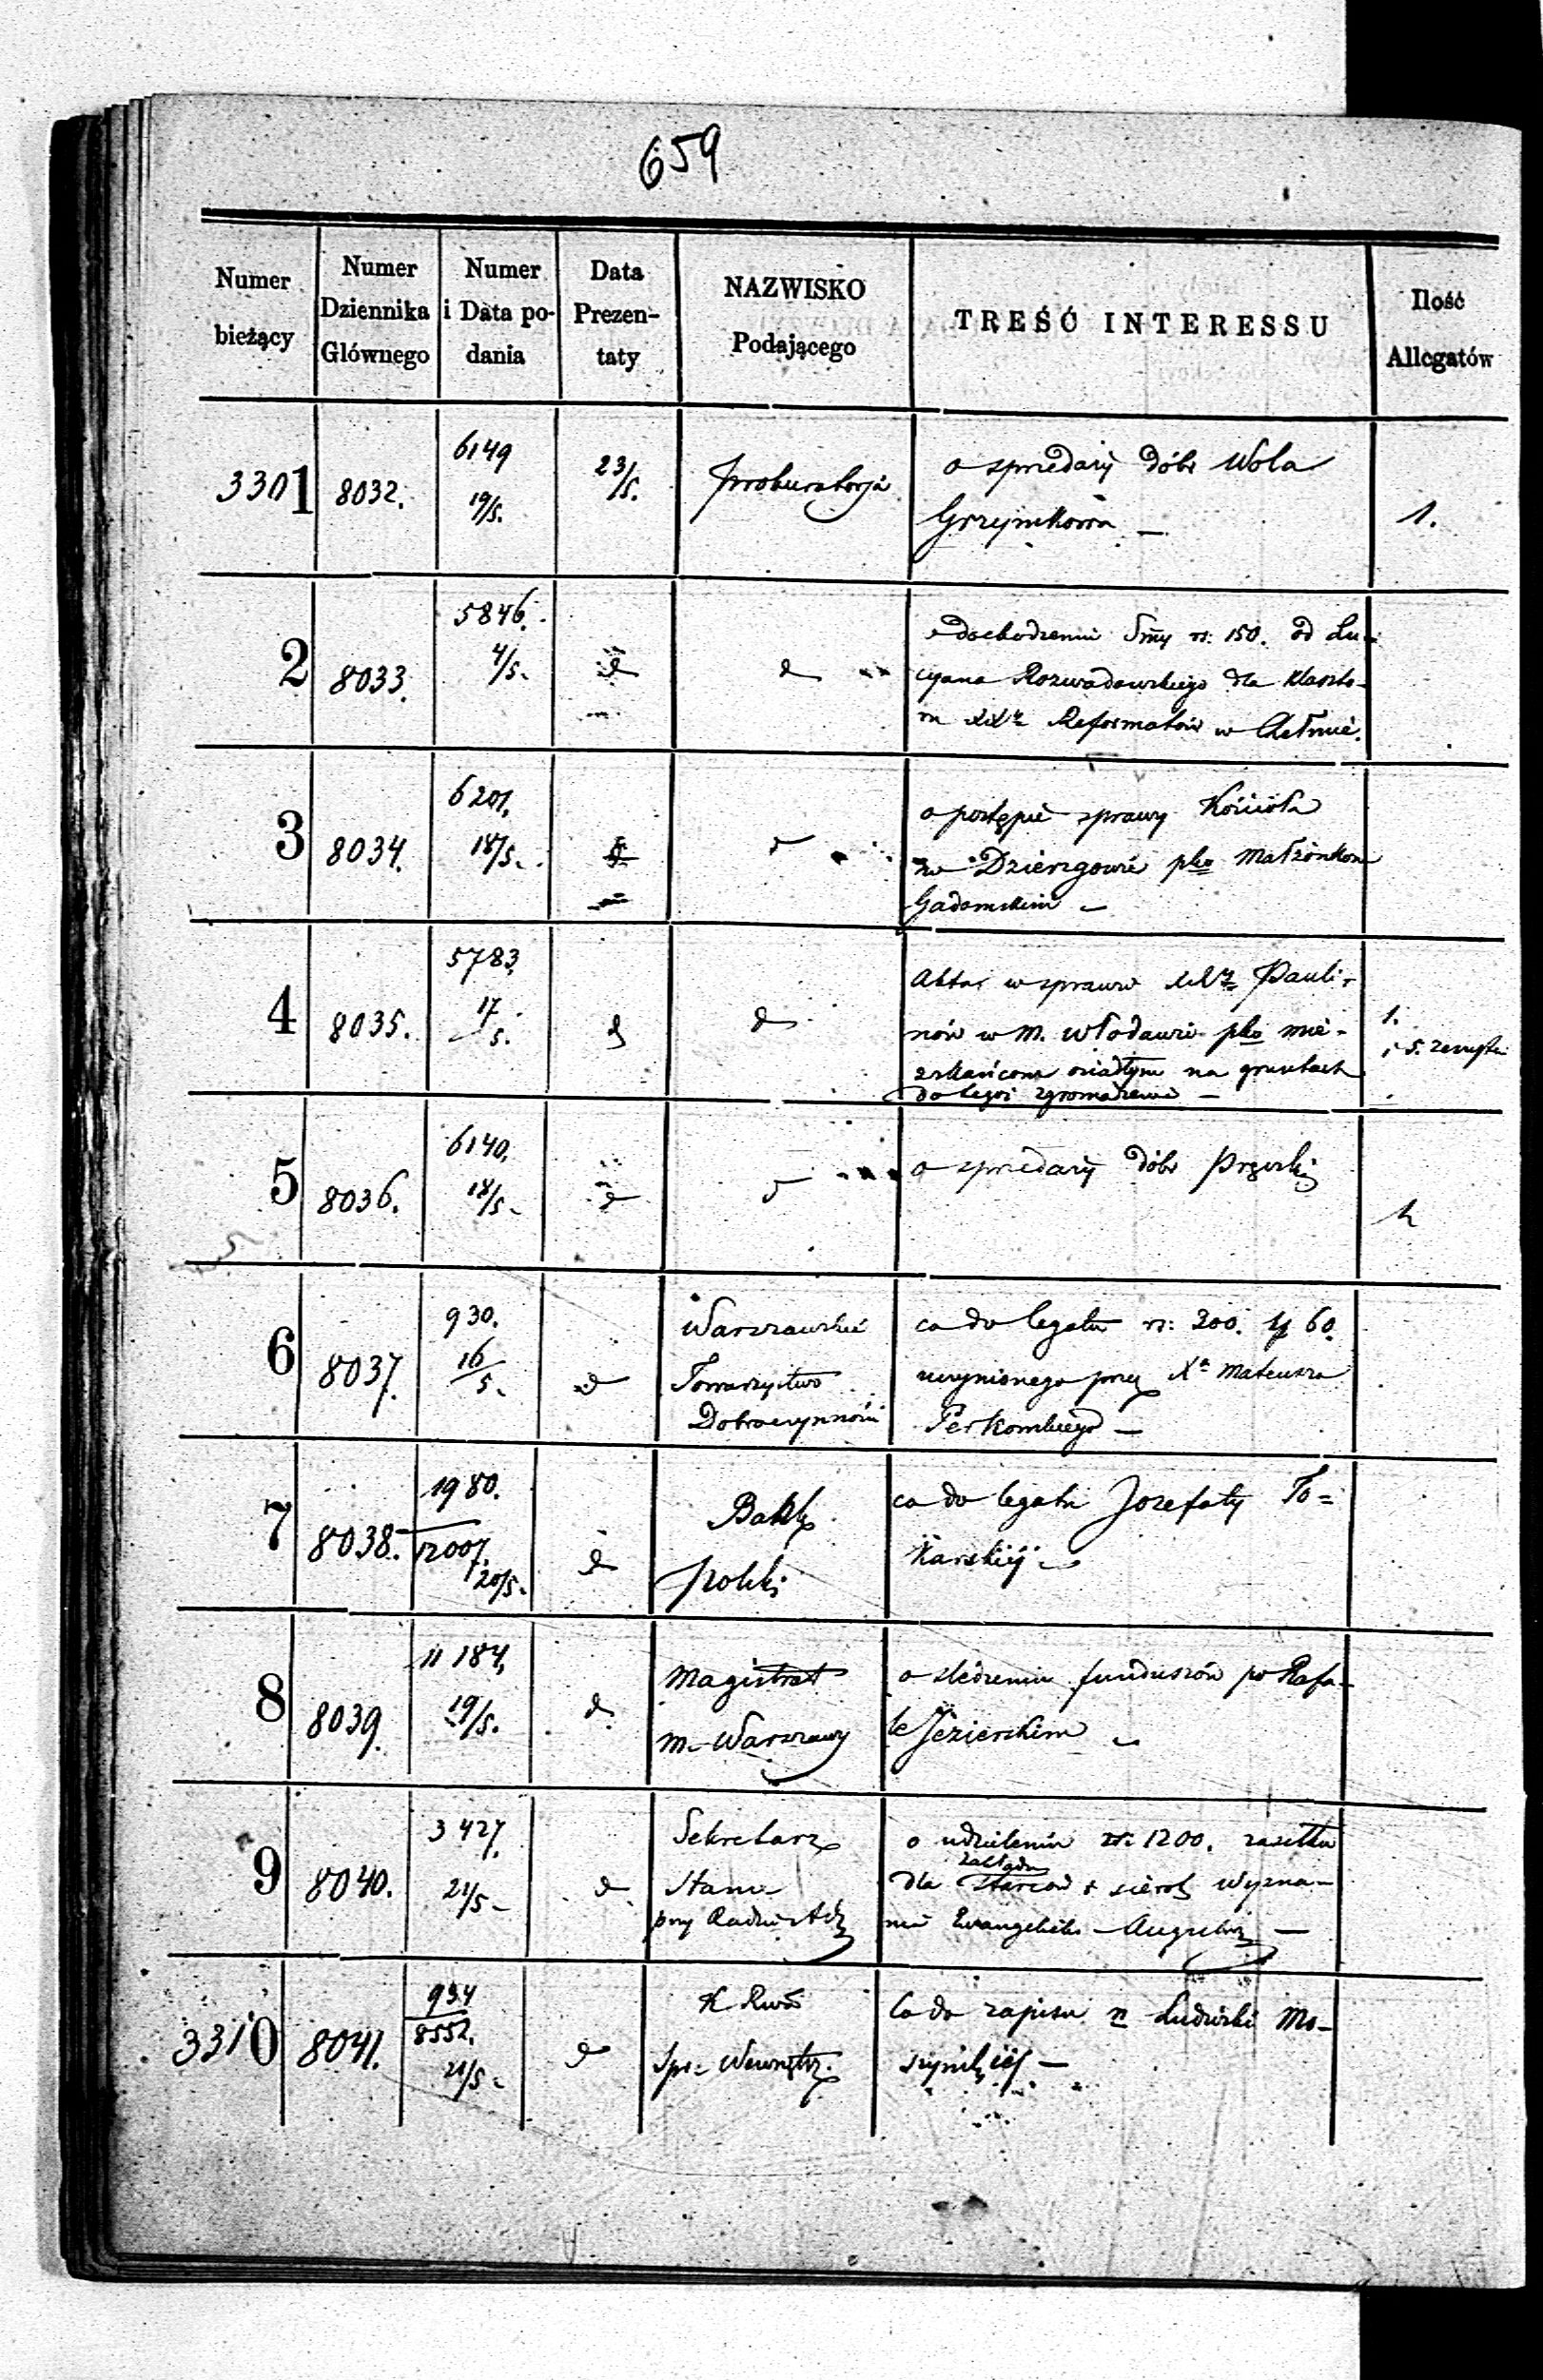 659
Numer bieżący
Numer Dziennika Głównego
Numer i Data podania
Data Prezentaty
NAZWISKO Podającego
TREŚĆ INTERESSU
Ilość Allegatów
3301
8032.
6149
19/5.
23/5.
Prokuratorja
o sprzedaży dóbr Wola
1.
2
8033.
5846.
4/5.
d
d
o dochodzeniu Smy rs: 150. od Lu-
cyana Rozwadowskiego dla Klaszto-
ru XX Reformatów w Chełmie.
3
8034.
6201.
18/5.
d
o postępie sprawy Kościoła
w Dzierzgowie pko Małżonkom
Gadomskim —
4
8035.
5783.
17/5.
d
d
Akta w sprawie XX Pauli-
nów w m. Włodawie pko mie-
szkańcom osiadłym na gruntach
do tegoż zgromadzenia —
1.
5
8036.
6140.
18/5.
d
o sprzedaży dóbr
6
8037.
930.
16/5.
d
Warszawskie
Towarzystwo
Dobroczynności
co do legatu rs: 200. y 60.
uczynionego przez Xa Mateusza
7
8038.
1980.
12007.
20/5.
d
Bank
Polski
co do legatu Jozefaty To=
karskiej —
8
8039.
11184.
19/5.
d
Magistrat
m. Warszawy
o śledzeniu funduszów po Rafa-
le Jezierskim
9
8040.
3427.
21/5
d
Sekretarz
Stanu
przy Radzie Adz
o udzieleniu rs: 1200. zasiłku
zakładu
dla starców i sierot Wyzna-
nia Ewangelicko-Augsburg —
3310
8041.
934
8552.
21/5
d
K Rwa
Spr. Wewnętrz.
Co do zapisu n Ludwiki Mo-